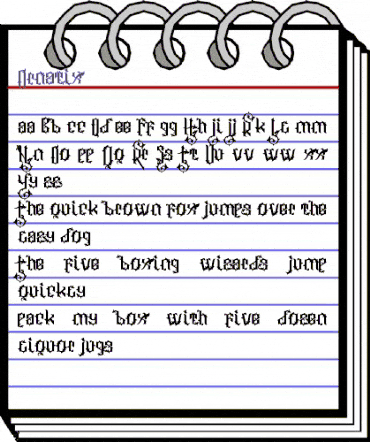 aa Bb cc Dd ee Ff gg Hh ii jj Kk Ll mm
Nn Oo pp Qq Rr Ss Tt Uu vv ww xx
Yy zz
The quick brown fox jumps over the
lazy dog
The five boxing wizards jump
quickly
pack my box with five dozen
liquor jugs